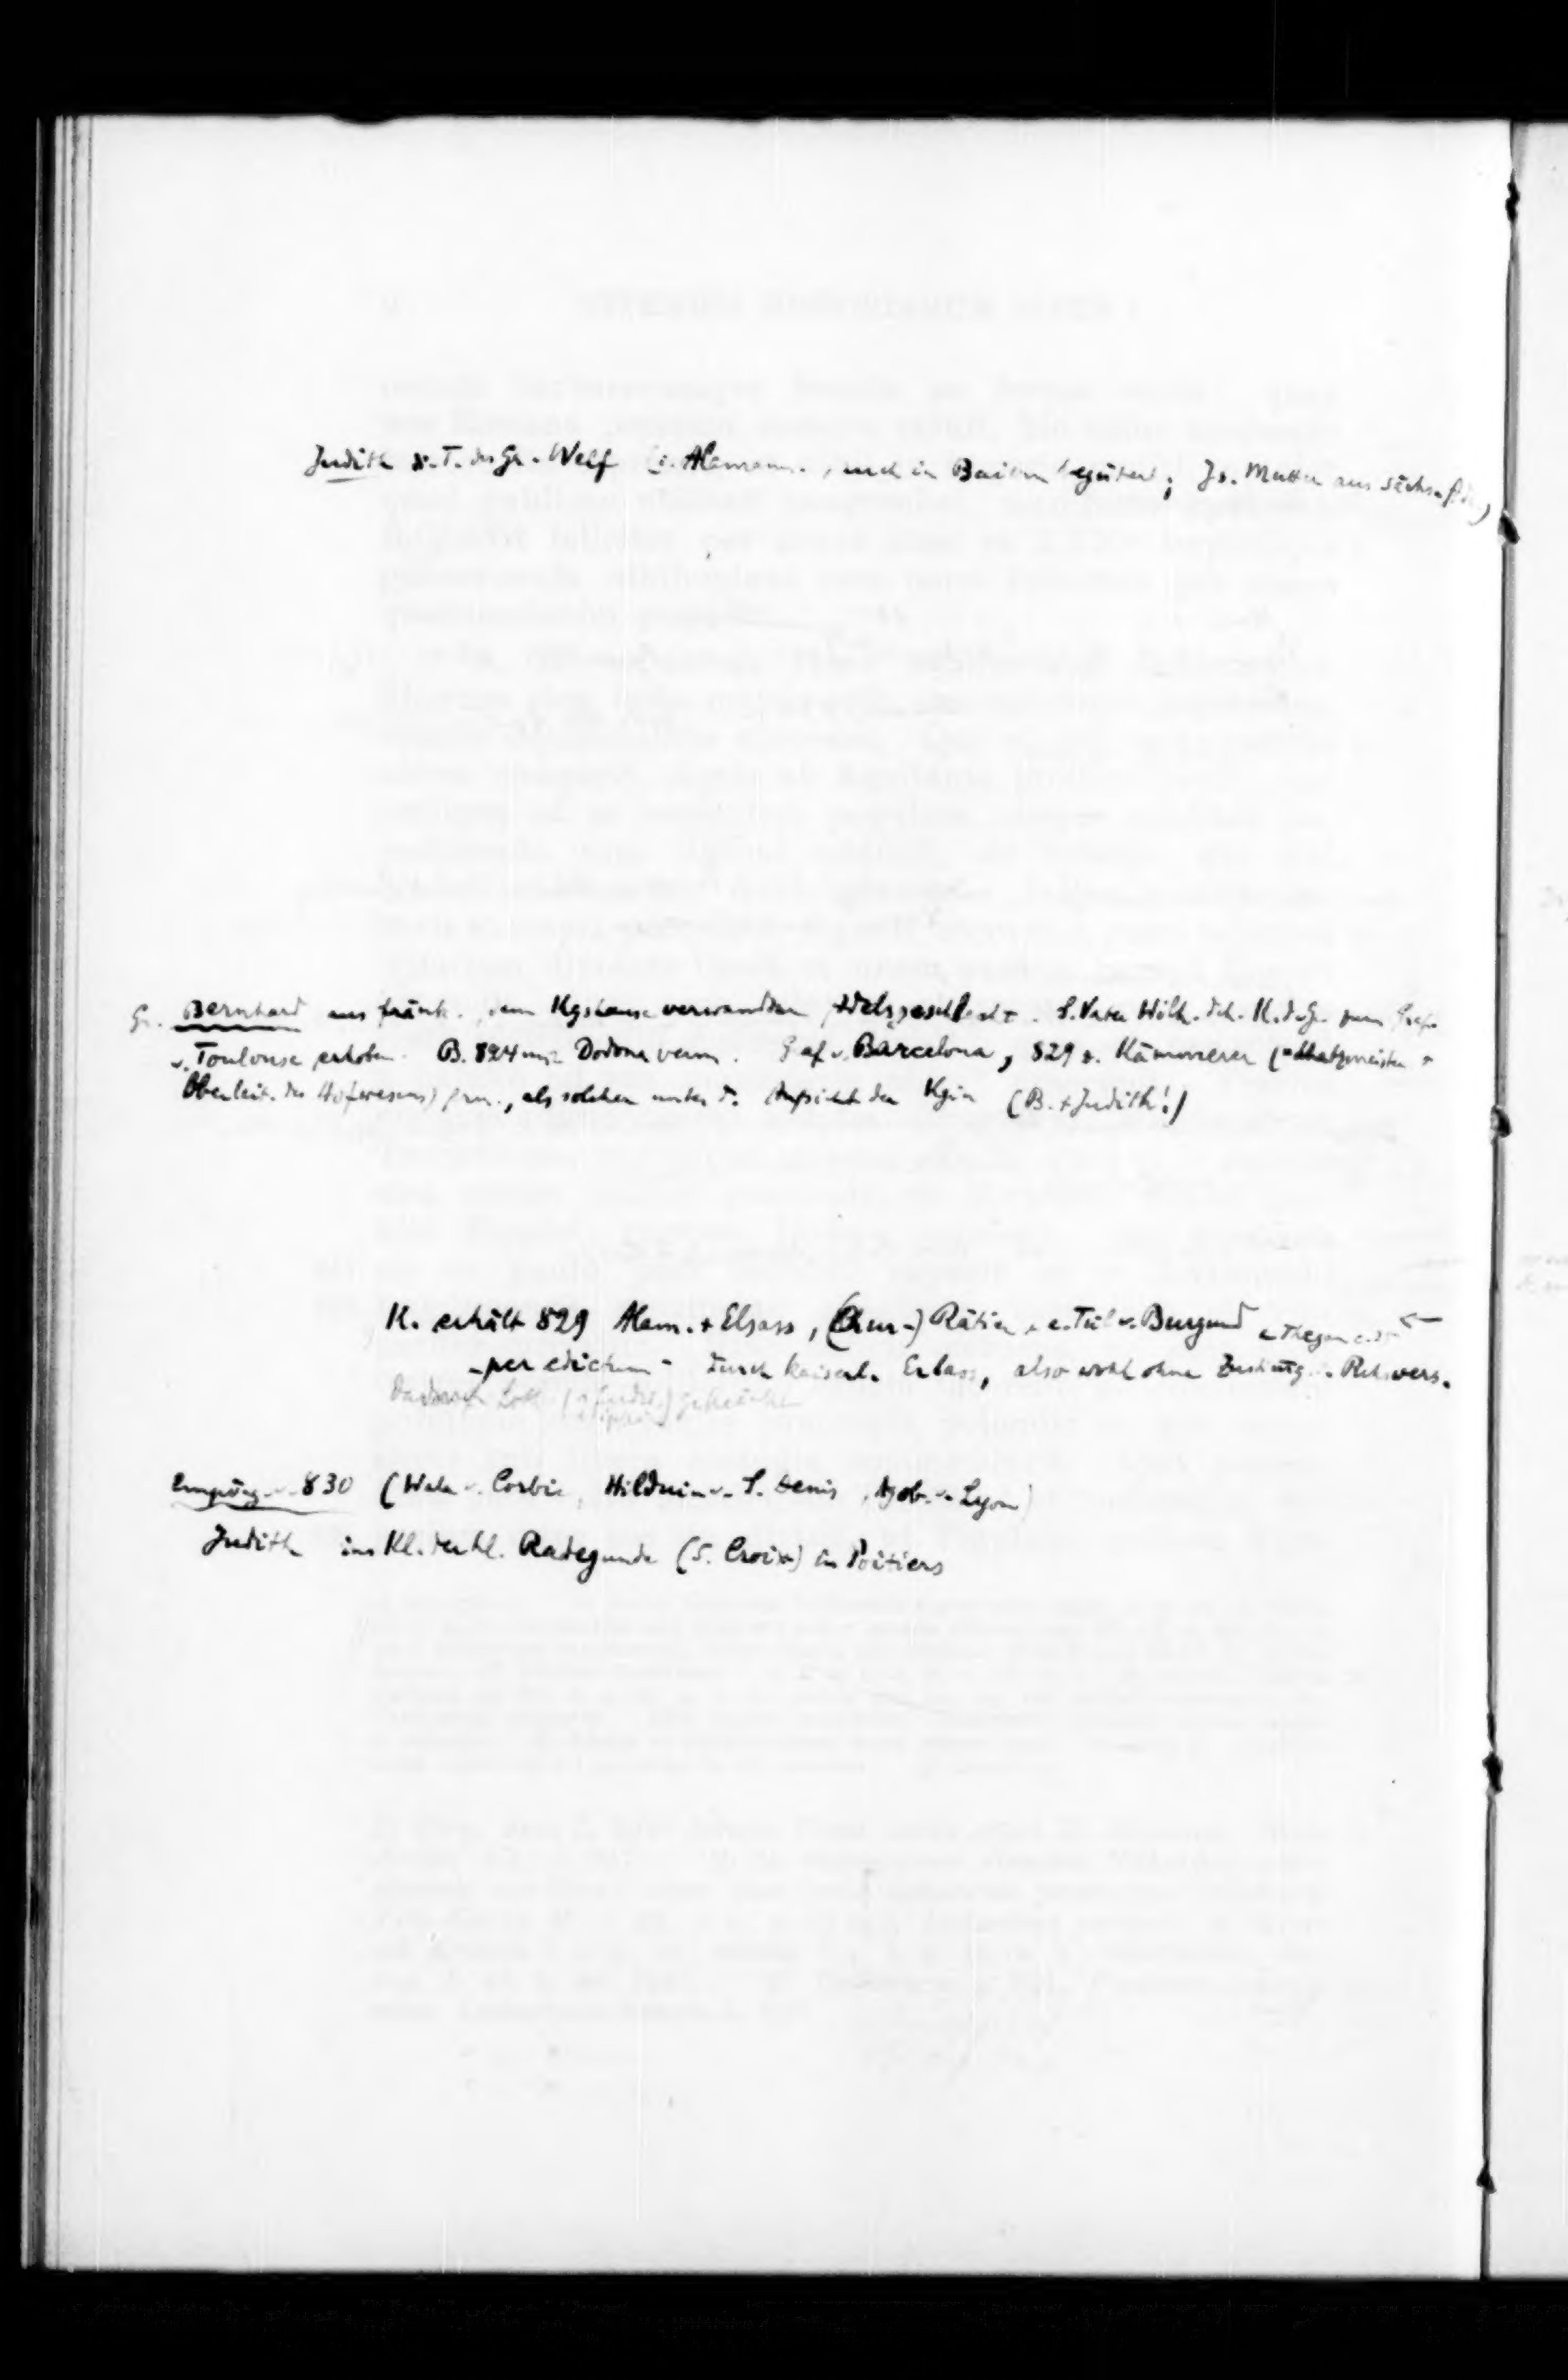 Judith d. T. des Gr. Welf (i. Alemann., auch in Baiern begütert; Js. Mutter aus sächs.
Gr. Bernhard aus fränk., dem Kgshause verwandten Adelsgeschlecht. S. Vater Wilh. dch. K. d. Gr. zum Grafen
v. Toulouse erhoben. B. 824 mit Dodona verm. Graf v. Barcelona, 829 z. Kämmerer (=Schatzmeister +
Oberleit. des Hofwesens) ern., als solcher unter d. Aufsicht der Kgin (B. + Judith!)
K. erhält 829 Alem. + Elsass, (Chur-) Rätien + e. Teil v. Burgund
- per edictum - durch kaiserl. Erlass, also wohl ohne Zustimmg. Rchsvers.
Dadurch Loth. gekränkt
Empörg. v. 830 (Wala v. Corbie, Hilduin v. S. Denis, Agob. v. Lyon)
Judith ins Kl. der hl. Radegunde (S. Croix) in Poitiers